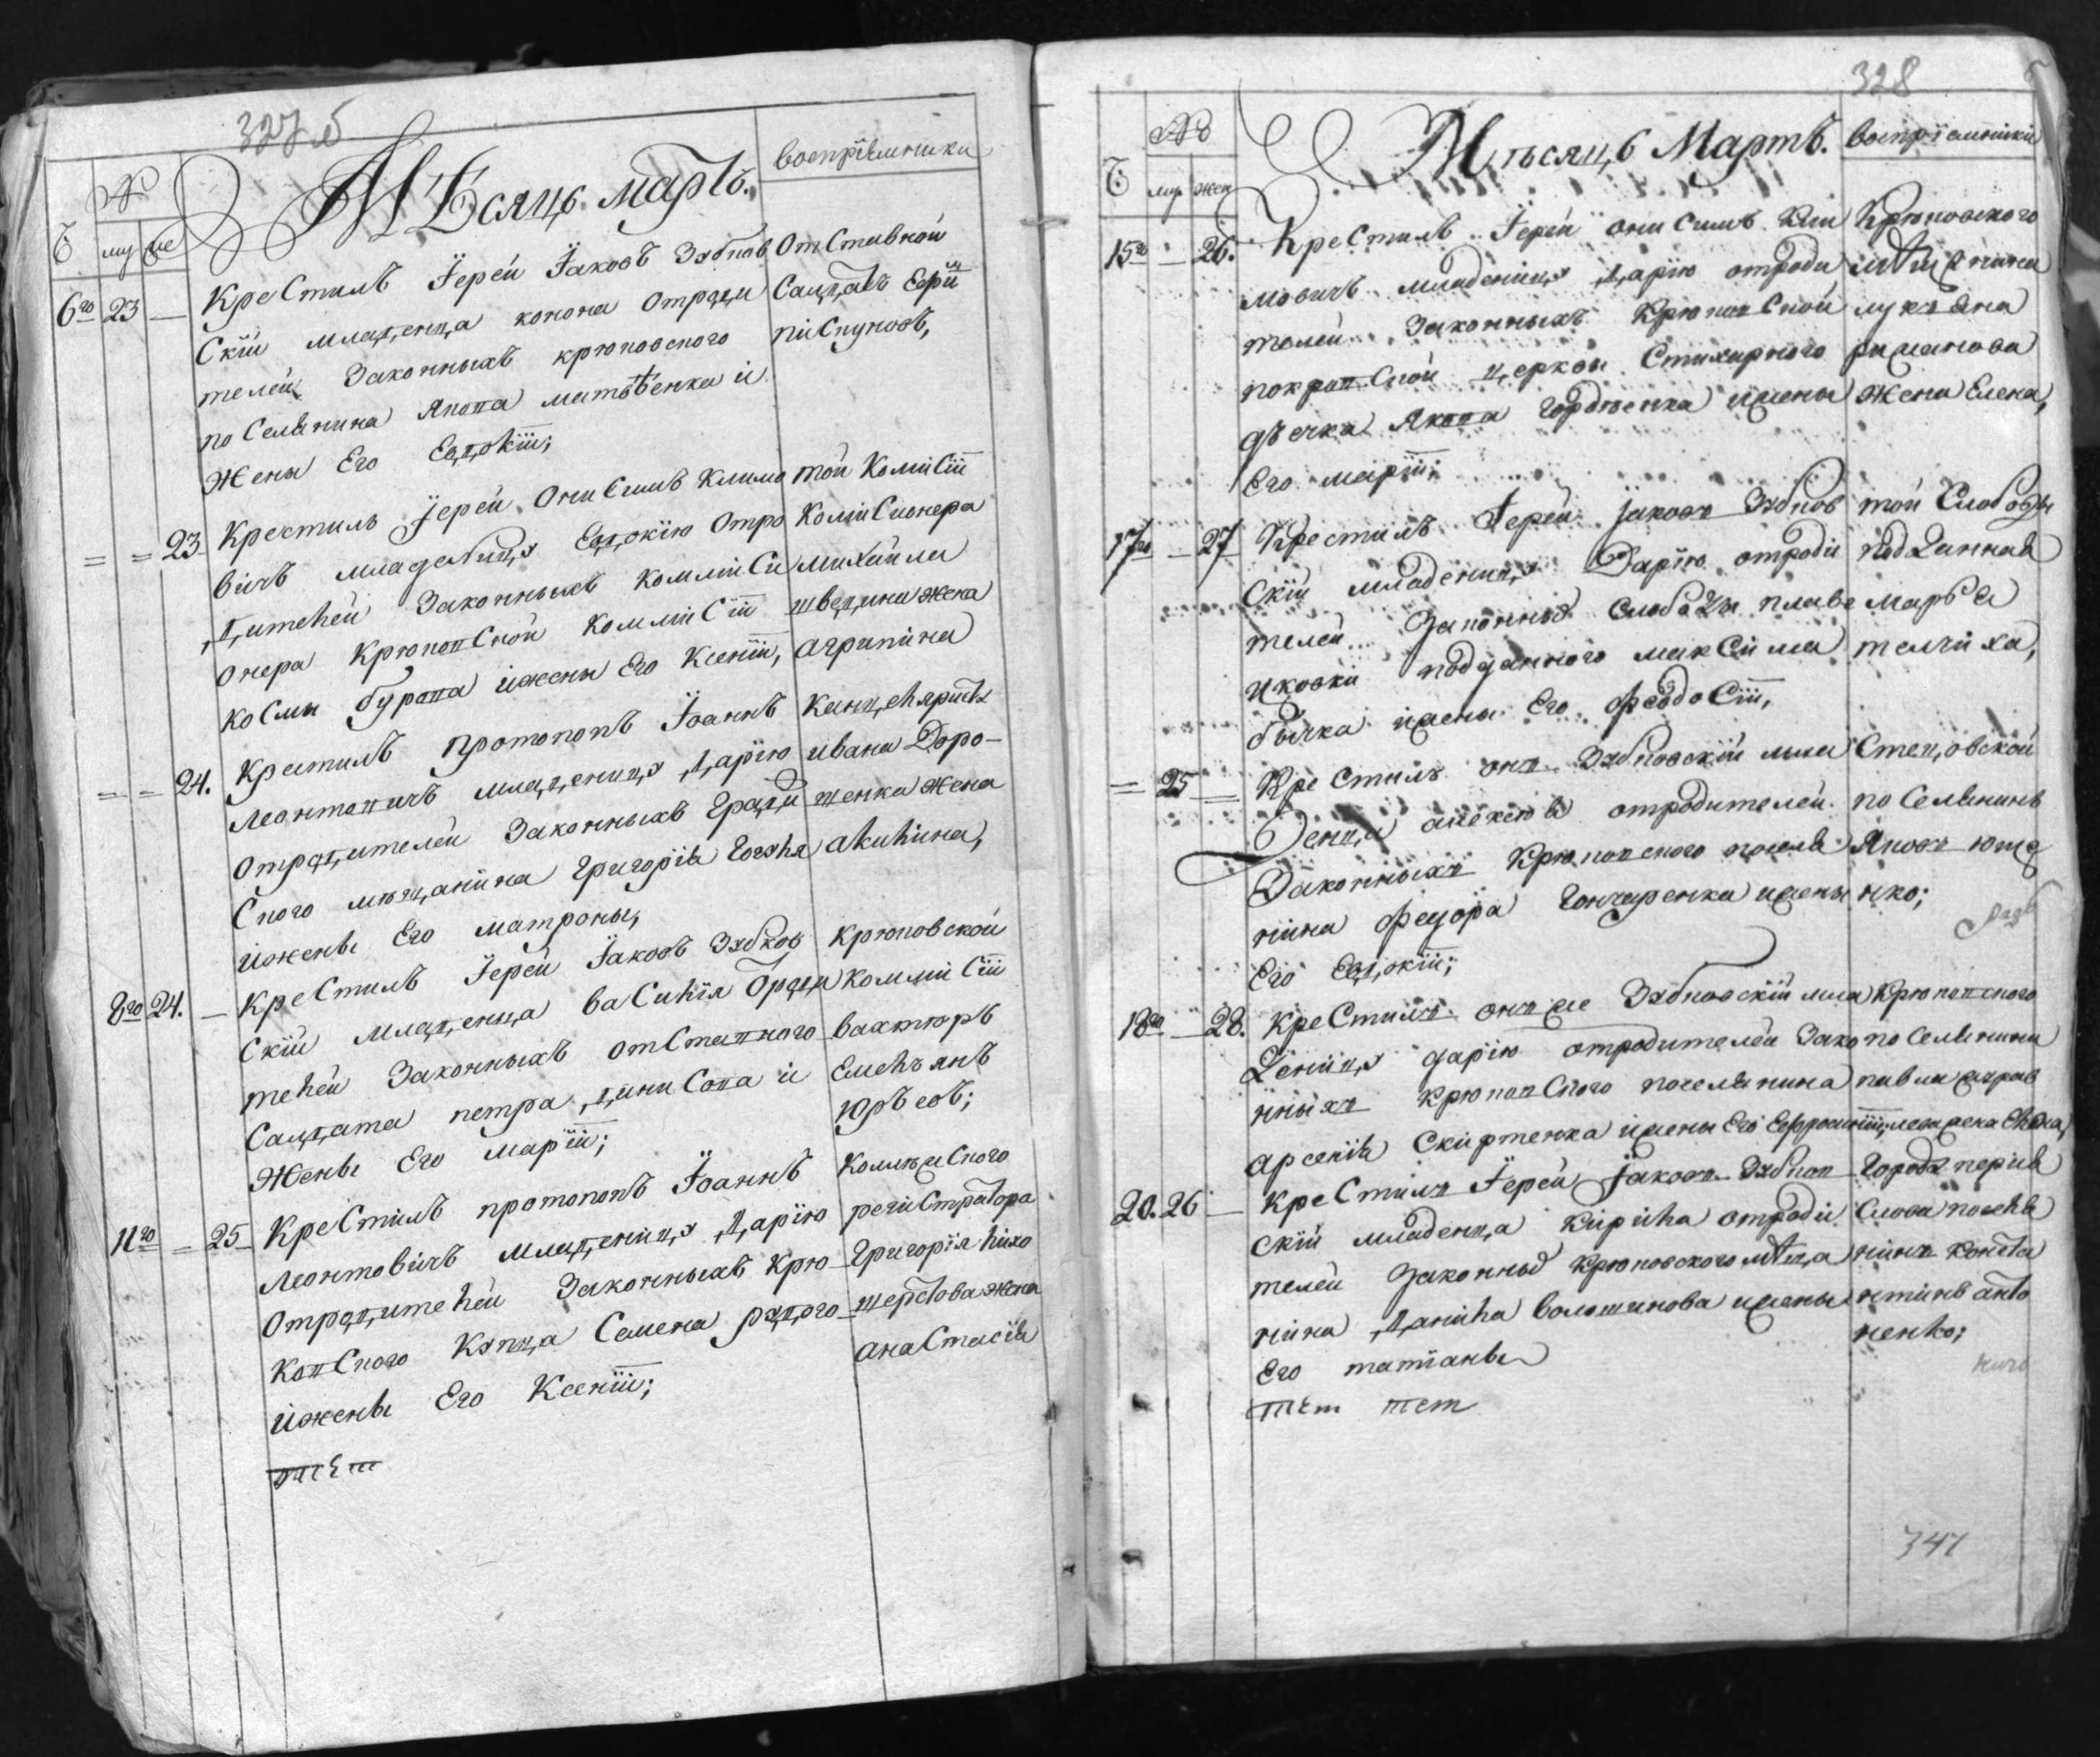 327 б
№
Мѣсяцъ мартъ.
воспріемники
Ч
му
же
6го 23 — Крестилъ Іерей Іаковъ Зубков
скій младенца конона отроди
телей законныхъ крюковского
поселянина Якова матвѣенка и
жены Его Евдокіи;
Отставной
Салдатъ
= = 23 Крестилъ Іерей Онисимъ Климо
вичъ младеницу Евдокію отро
дителей законныхъ коммиси
онера крюковской коммисіи
космы бурова ижены Его Ксеніи,
той комисіи
комисионера
михаила
шведина жена
агрипина
= = 24. Крестилъ протопопъ Іоаннъ
Леонтовичъ младеницу дарїю
отродителей законныхъ Гради
ского мещанина григорія
ижены Его матроны,
канцеляриста
ивана Доро-
шенка жена
акилина,
8го 24. — Крестилъ Іерей Іаковъ Зубков
скій младенца василїя отроди
телей законныхъ отставного
салдата петра денисова и
жены Его маріи;
крюковской
коммисіи
вахтюръ
Емельянъ
юрьевъ;
11го — 25 Крестилъ протопопъ Іоаннъ
Леонтовичъ младеницу дарїю
отродителей законныхъ крю
ковского купца Семена рудого
ижены Его Ксеніи;
коллежского
регистратора
Григорїя лихо
шерстова жена
анастасїя
328
№
Мѣсяцъ Мартъ.
воспріемники
Ч
му
жен
15го — 26. Крестилъ Іерей онисимъ Кли
мовичъ младеницу дарїю отроди
телей законныхъ крюковской
покровской церкви стихирного
дьячка Якова гордѣенка ижены
Его маріи;
Крюковского
мѣщанина
лукяна
романова
жена Елена,
17го — 27 Крестилъ Іерей Іаковъ Зубков
скій младеницу Дарїю отроди
телей законныхъ слободы плаве
цковки подданного максима
бычка ижены Его феодосіи,
той слободы
подданная
марѳа
телчиха,
= 25 — Крестилъ онъ Зубковскій мла
денца алексѣя отродителей
законныхъ Крюковского посели
нина федора Гончаренка ижены
Его Евдокіи;
поселянинъ
Яковъ юще
нко;
18го — 28. Крестилъ онъ же Зубковскій мла
деницу дарїю отродителей зако
нныхъ крюковского поселянина
арсенія скиртенка ижены Его Ефросиніи,
Крюковского
поселянина
павла
20. 26 — Крестилъ Іерей Іаковъ Зубков
скій младенца кирила отроди
телей законныхъ крюковского мѣща
нина данила волошинова ижены
Его татїаны
города
поселя
нинъ конста
нтинъ анто
ненко;
341